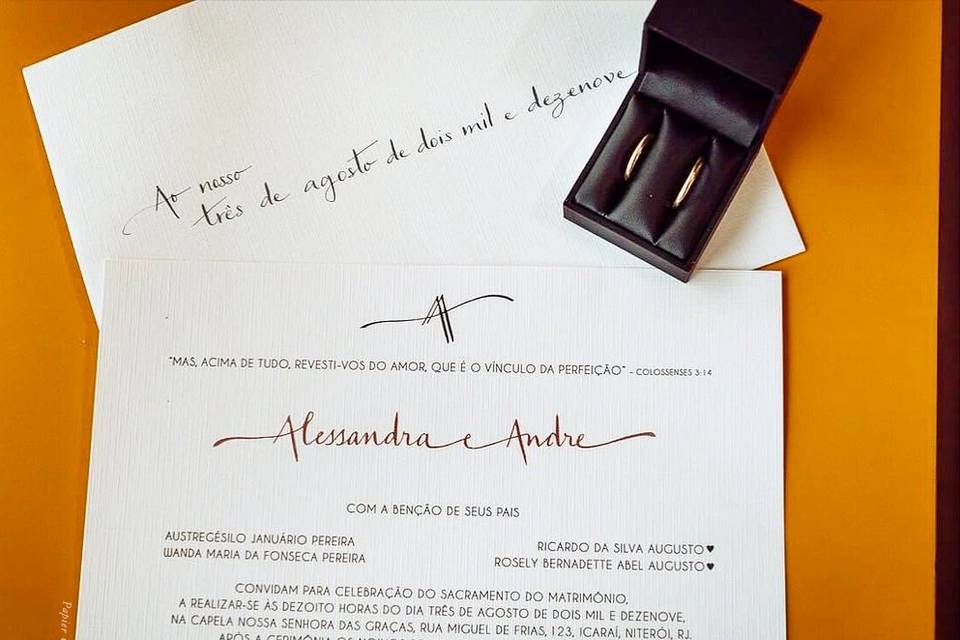 Ao nosso
três de agosto de dois mil e dezenove
"MAS, ACIMA DE TUDO, REVESTI-VOS DO AMOR, QUE É O VÍNCULO DA PERFEIÇÃO" - COLOSSENSES 3:14
Alessandra e Andre
COM A BENÇÃO DE SEUS PAIS
AUSTREGÉSILO JANUÁRIO PEREIRA
WANDA MARIA DA FONSECA PEREIRA
RICARDO DA SILVA AUGUSTO♥
ROSELY BERNADETTE ABEL AUGUSTO♥
CONVIDAM PARA CELEBRAÇÃO DO SACRAMENTO DO MATRIMÔNIO,
A REALIZAR-SE ÀS DEZOITO HORAS DO DIA TRÊS DE AGOSTO DE DOIS MIL E DEZENOVE,
NA CAPELA NOSSA SENHORA DAS GRAÇAS, RUA MIGUEL DE FRIAS, 123, ICARAÍ, NITERÓI, RJ.
APÓS A CERIMÔNIA OS NOIVOS
Papier